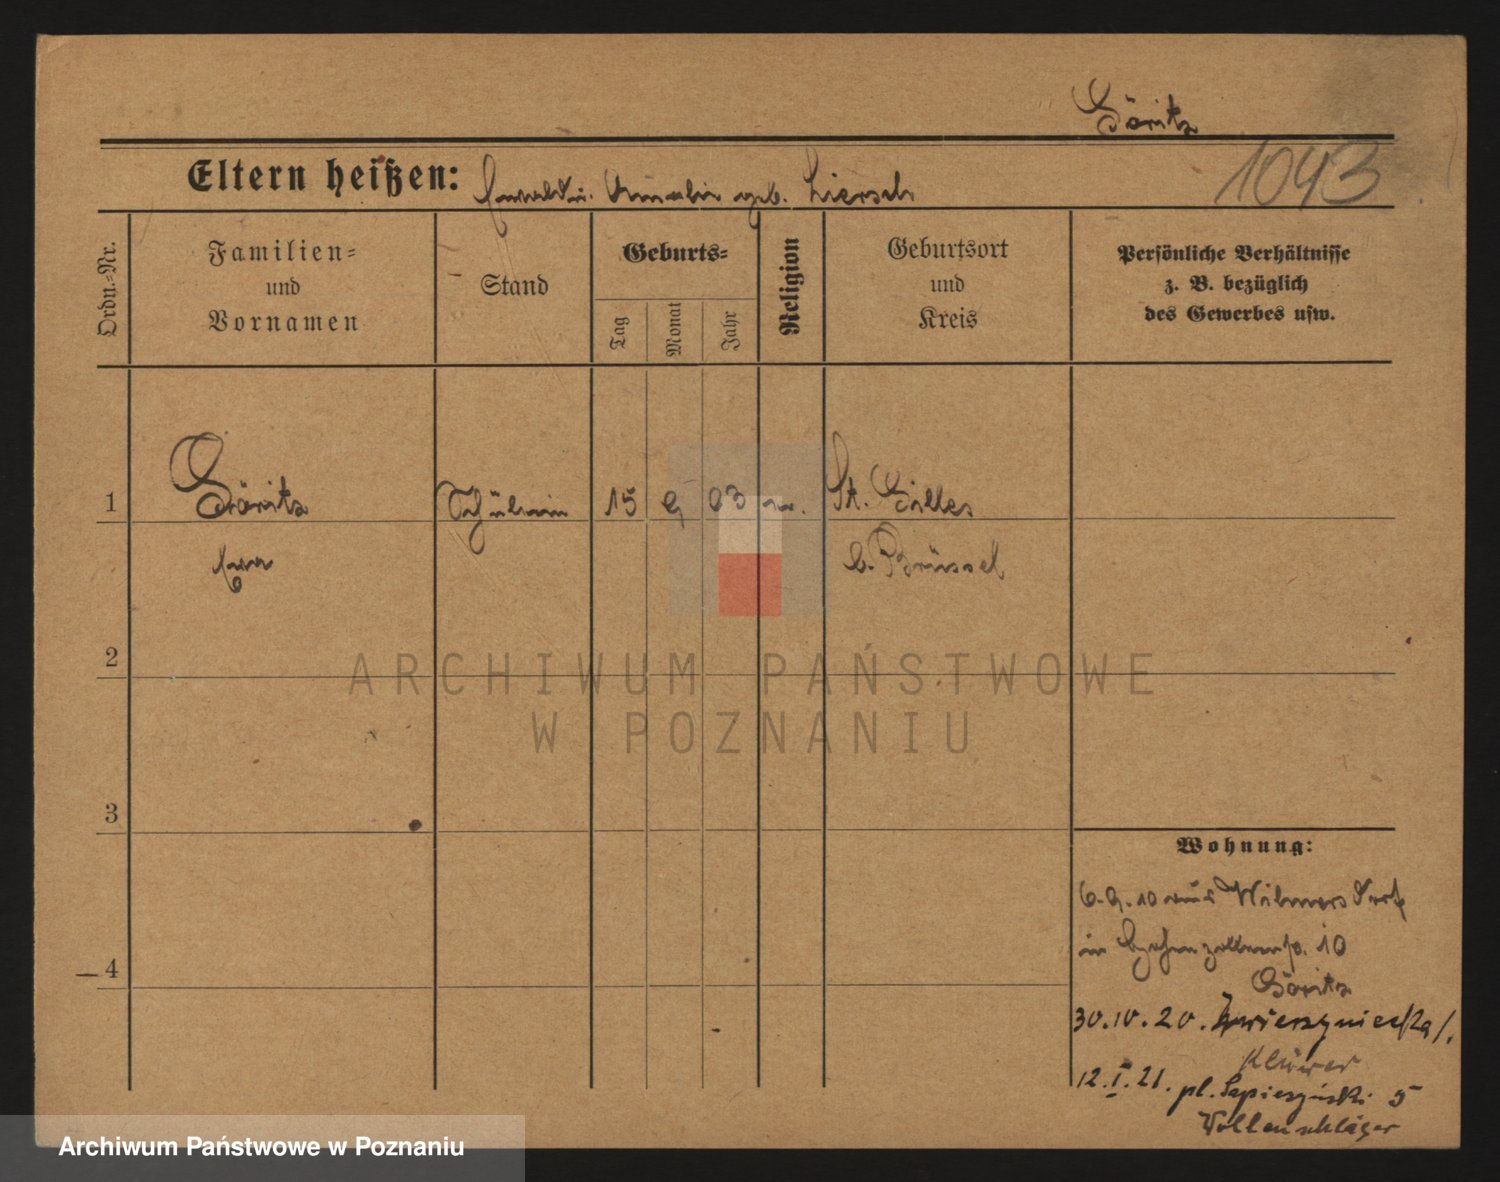 Göritz
1043
Eltern heißen: Ewald u. Amalie geb. Liersch
Ordn.=Nr.
Familien=
und
Vornamen
Stand
Geburts=
Tag
Monat
Jahr
Religion
Geburtsort
und
Kreis
Persönliche Verhältnisse
z. B. bezüglich
des Gewerbes usw.
1
Göritz
Eva
Schülerin
15
9
03
ev.
St. Gilles
b. Brüssel
2
3
4
Wohnung:
6.9.10 aus Wilmersdorf
in Hohenzollernstr. 10
Göritz
30.10.20. Zwierzyniecka 1.
Klüwer
12.I.21. pl. Sapieżyński 5
Wollenschläger
ARCHIWUM PAŃSTWOWE
W POZNANIU
Archiwum Państwowe w Poznaniu